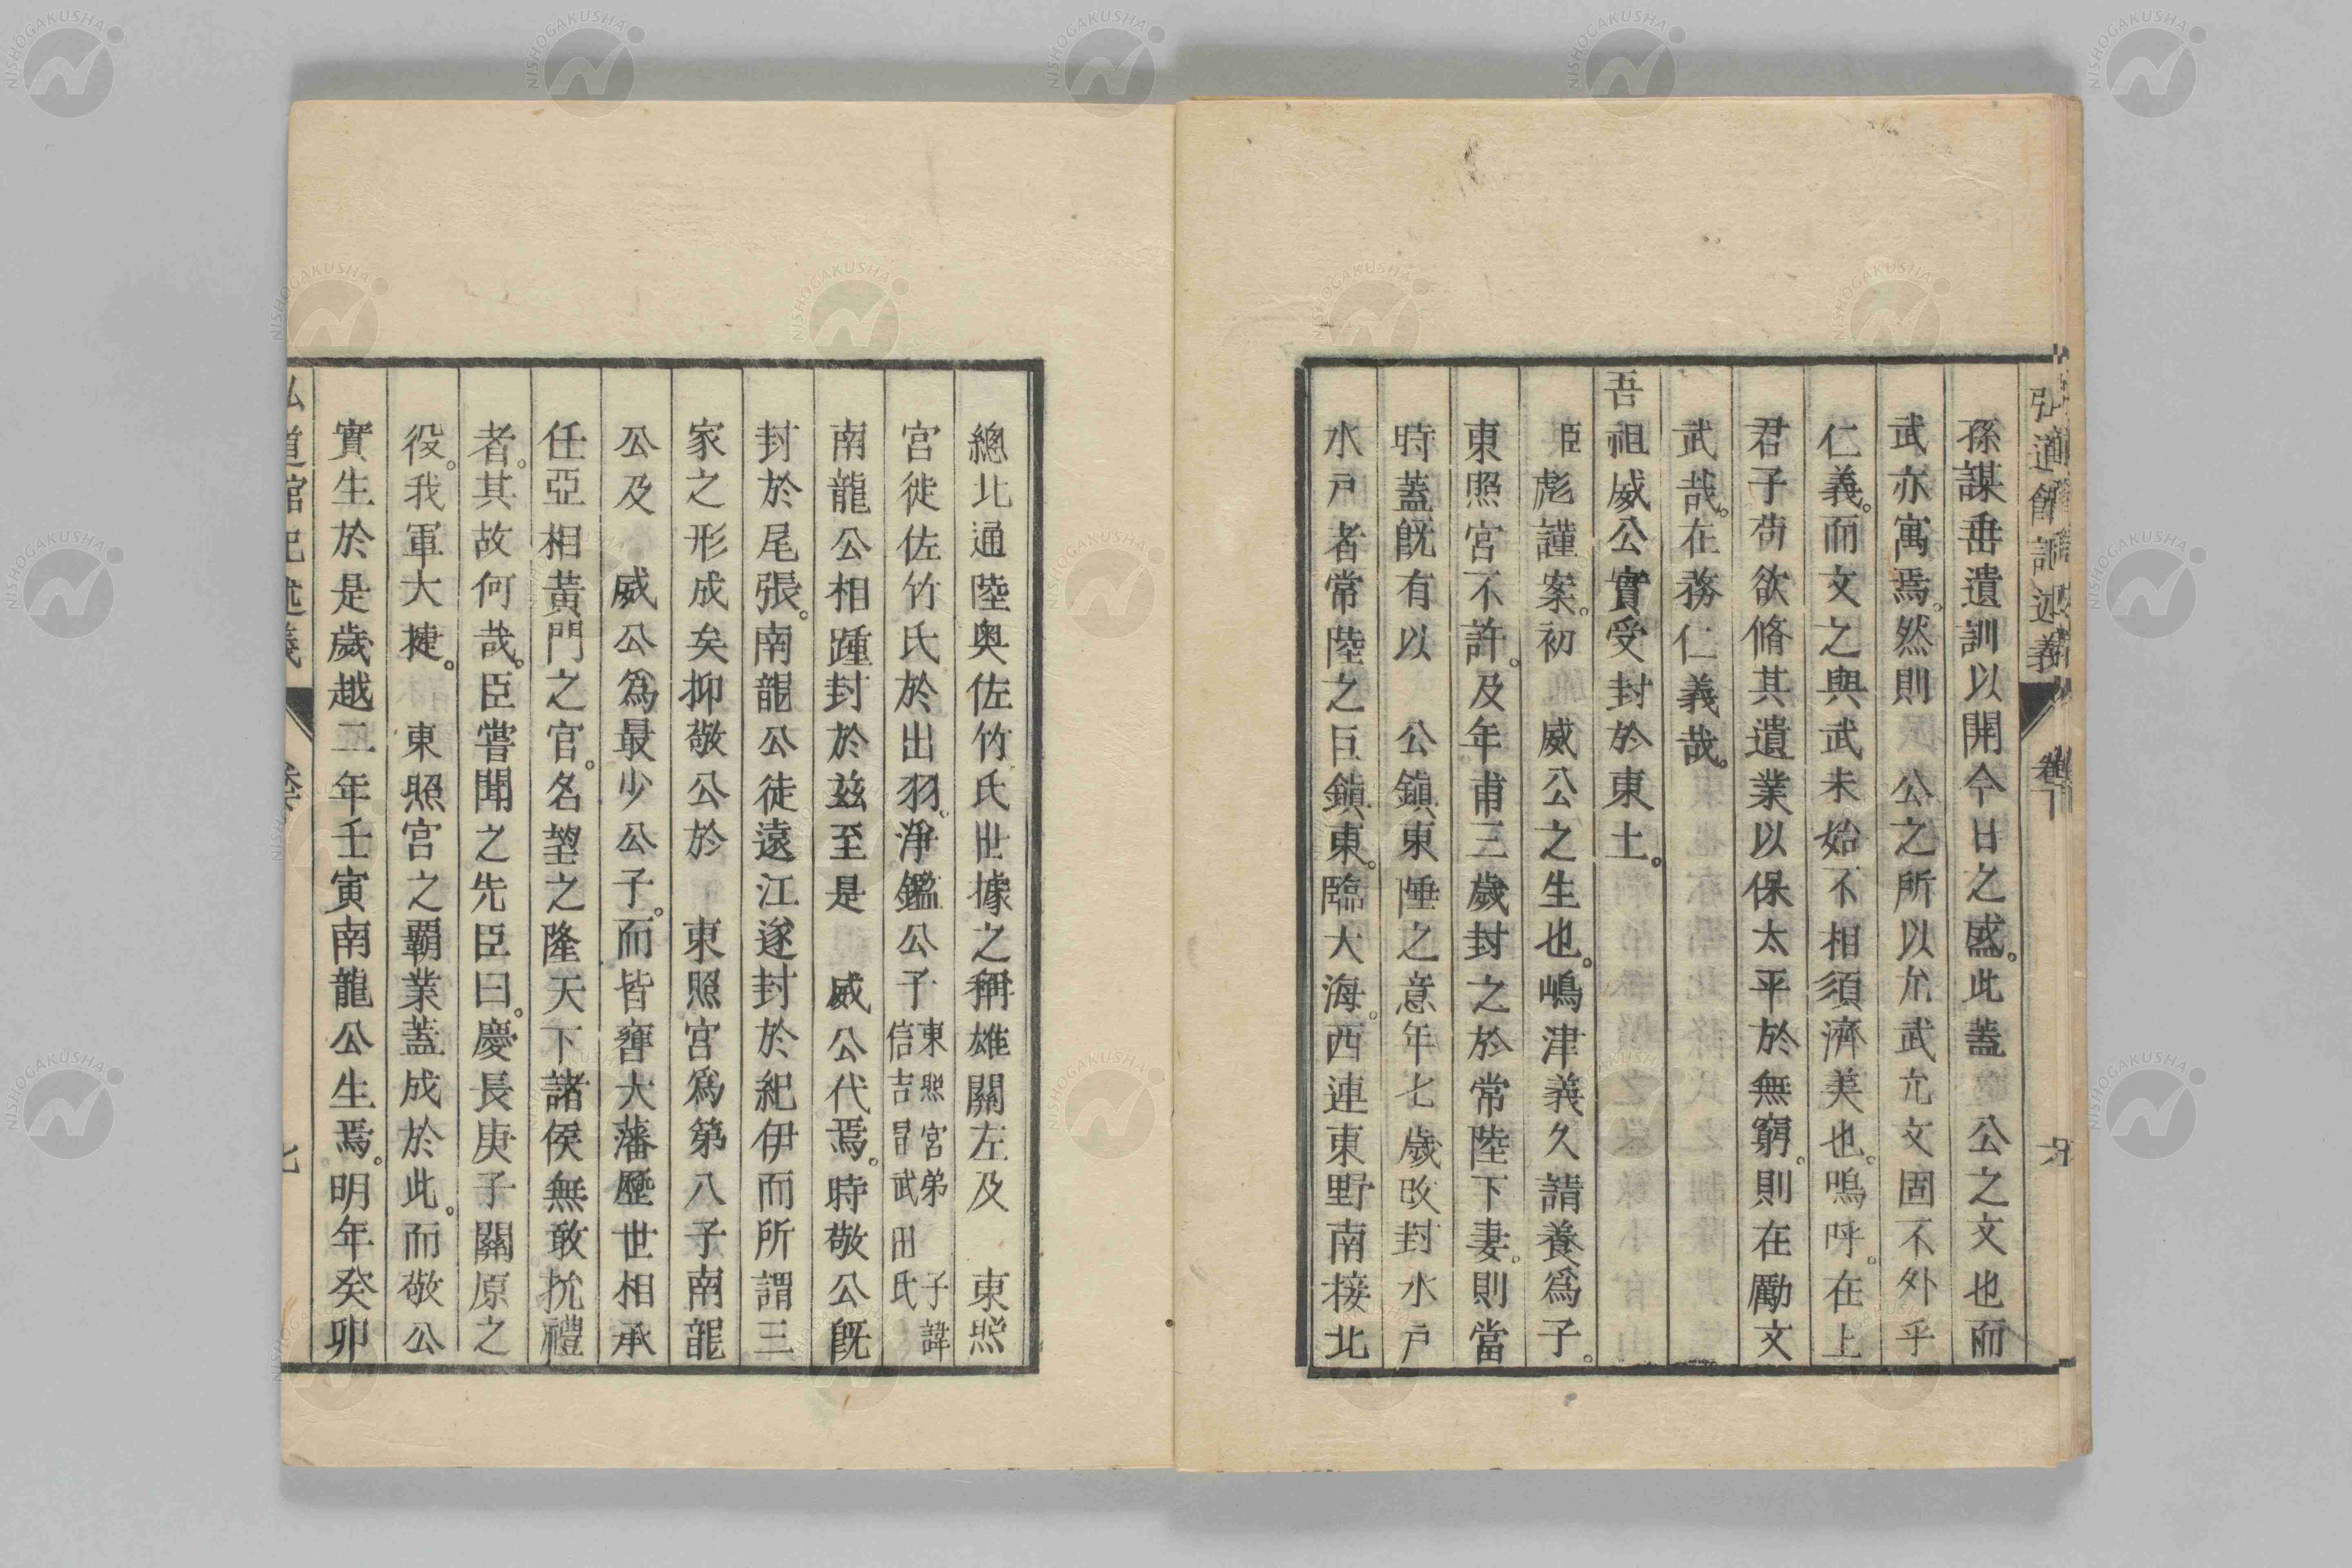 弘道館記述義 卷下 六
孫謀垂遺訓以開今日之盛。此蓋 公之文也而
武亦寓焉。然則 公之所以允武允文固不外乎
仁義。而文之與武未始不相須濟美也。嗚呼。在上
君子苟欲脩其遺業以保太平於無窮。則在勵文
武哉。在務仁義哉。
吾祖威公實受封於東土。
臣彪謹案。初 威公之生也。嶋津義久請養爲子。
東照宮不許。及年甫三歲封之於常陸下妻。則當
時蓋既有以 公鎭東陲之意年七歲改封水戸
水戸者常陸之巨鎭東。臨大海。西連東野南接北
總北通陸奧佐竹氏世據之稱雄關左及 東照
宮徙佐竹氏於出羽。淨鑑公子東照宮弟 子諱信吉冒武田氏
南龍公相踵封於玆至是 威公代焉。時敬公既
封於尾張。南龍公徒遠江遂封於紀伊而所謂三
家之形成矣抑敬公於 東照宮爲第八子南龍
公及 威公爲最少公子。而皆窜大藩歷世相承
任亞相黃門之官。名望之隆天下諸侯無敢抗禮
者。其故何哉。臣嘗聞之先臣曰。慶長庚子關原之
役。我軍大捷。 東照宮之覇業蓋成於此。而敬公
實生於是歲越二年壬寅南龍公生焉。明年癸卯
弘道館記述義 七
NISHOGAKUSHA